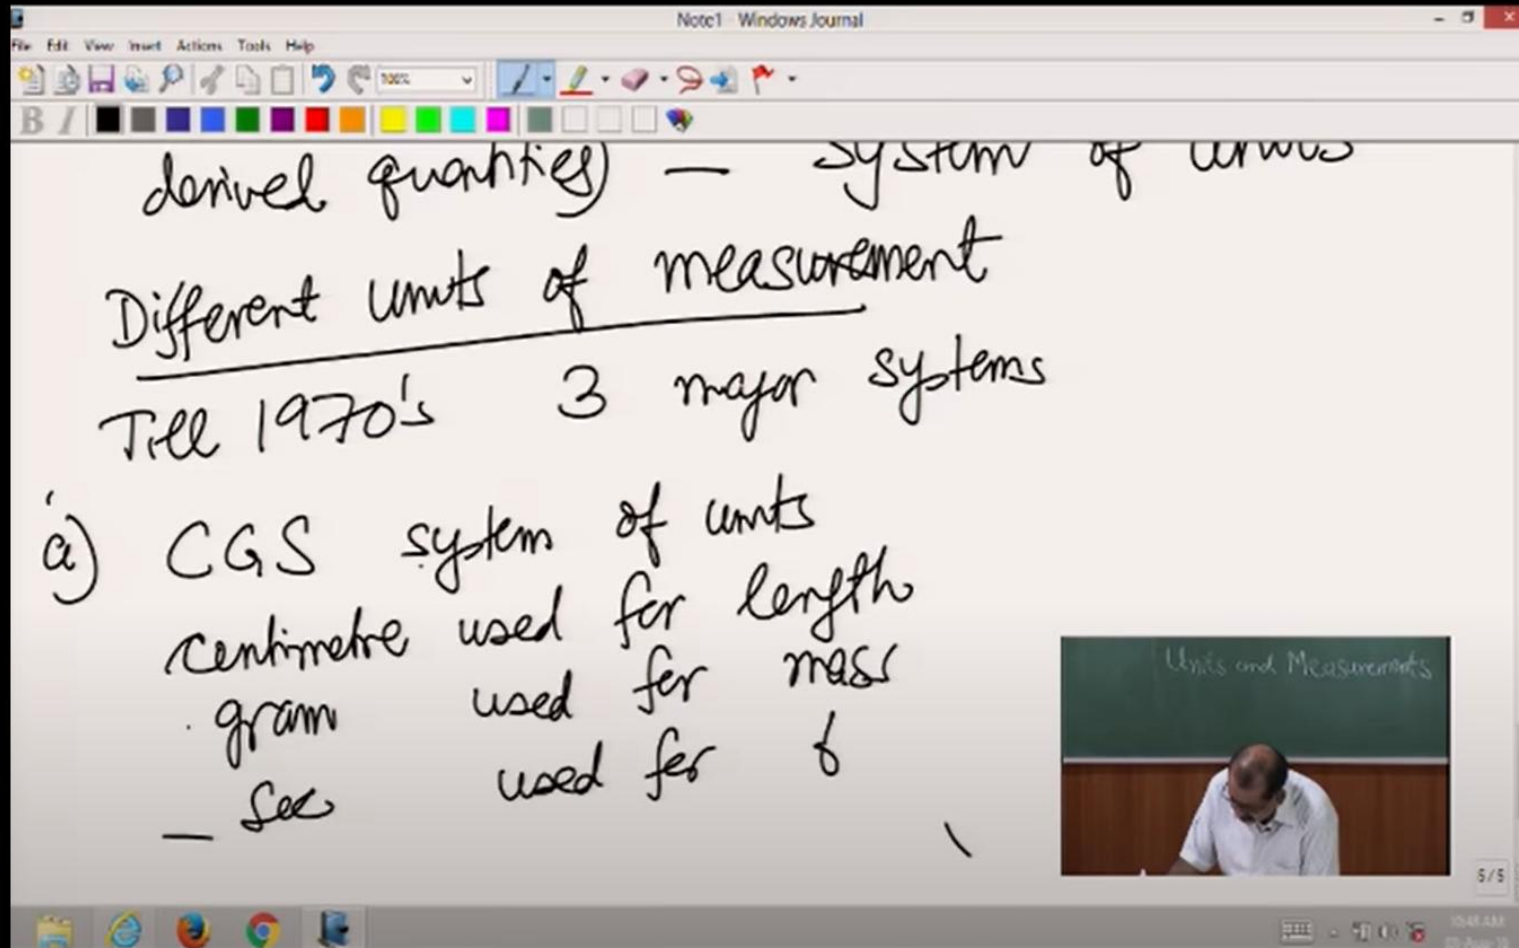 Note1 - Windows Journal
File Edit View Insert Actions Tools Help
100%
B I
derived quantities) — system of units
Different units of measurement
Till 1970's 3 major systems
a) CGS system of units
centimetre used for length
gram used for mass
sec used for t
Units and Measurements
5/5
10:48 AM